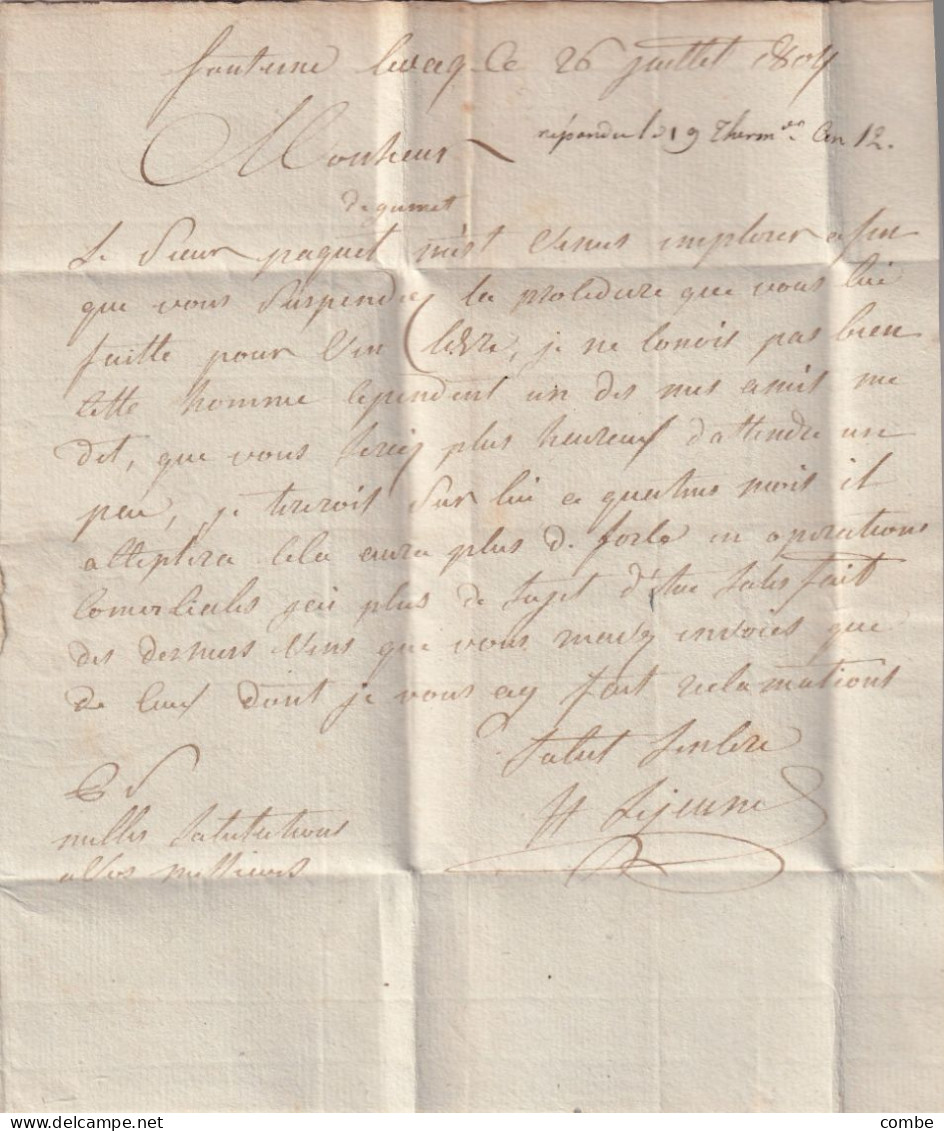 fontenne leveq Ce 26 juillet 1804
répondu le 19 Therm.or An 12.
Monsieur
de gumet
Le Sieur paquet m'est venus implorer afin
que vous Suspendiez la procedure que vous lui
faitte pour vin livré, je ne Conois pas bien
Cette homme Cependent un des mes amis me
dit, que vous Seriez plus heureux d'attendre un
peu, je tireroit Sur lui a quattres mois il
acceptera Cela aura plus de force en operations
Comerciales j'ai plus de Sujet d'être Satisfait
des derniers vins que vous mavez envoiés que
de Ceux dont je vous ay fait reclamations
Salut Sincere
H Lejeune
PS
milles Salutations
a vos messieurs
combe